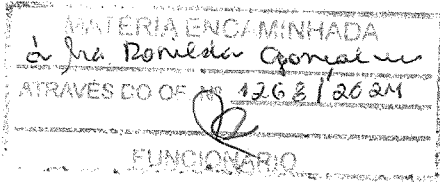 MATÉRIA ENCAMINHADA
à Sra Ronilda Gonçalves
ATRAVÉS DO OF. Nº 1268/2024
FUNCIONÁRIO